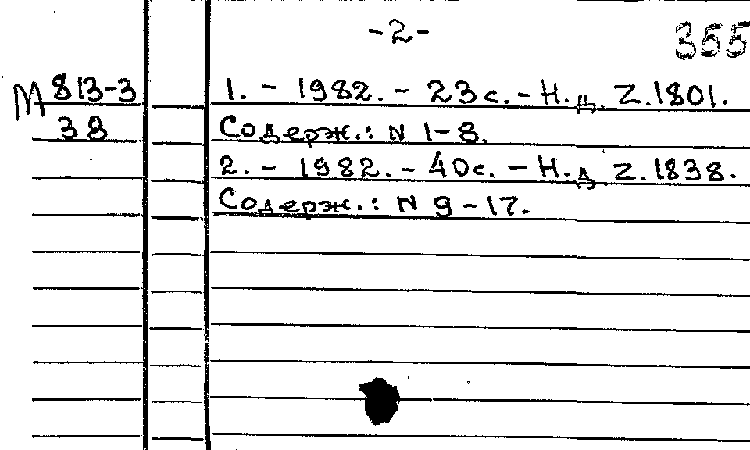 -2-
355
М 813-3
38
1. - 1982. - 23 с. - Н. д. Z.1801.
Содерж.: N 1-8.
2. - 1982. - 40с. - Н. д. Z.1838.
Содерж.: N 9-17.